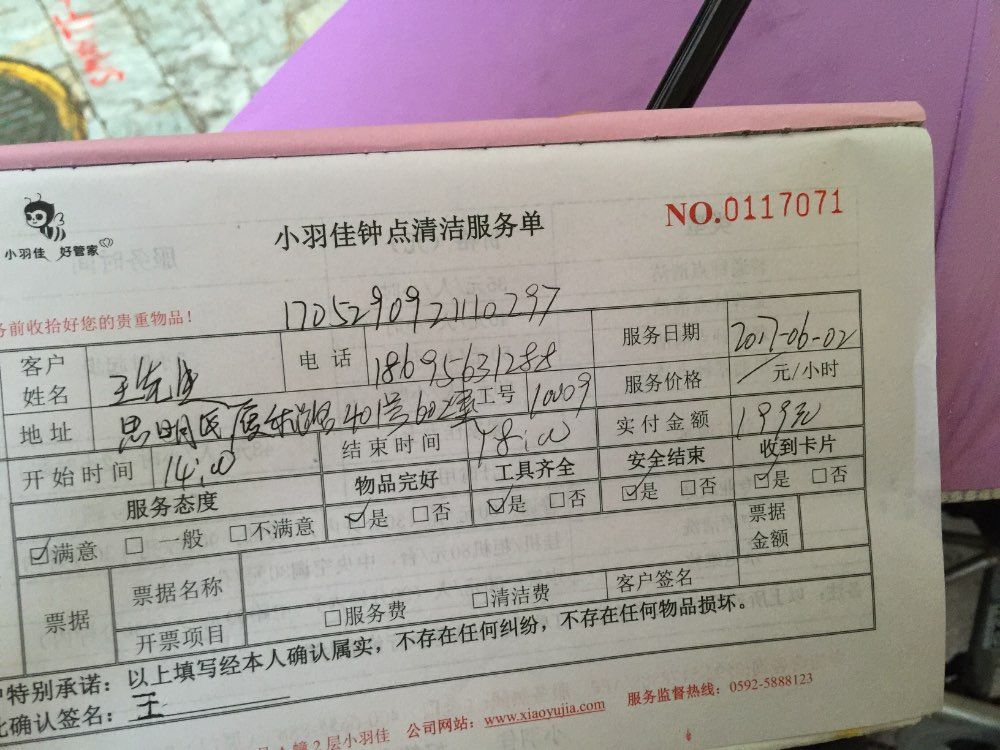 小羽佳 好管家
小羽佳钟点清洁服务单
NO.0117071
务前收拾好您的贵重物品！
17052909211110297
客户姓名 王先生 电话 18695631288 服务日期 2017-06-02
地址 思明区厦禾路401号602室 工号 10009 服务价格 / 元/小时
开始时间 14:00 结束时间 18:00 实付金额 199元
服务态度 物品完好 工具齐全 安全结束 收到卡片
☑满意 □一般 □不满意 ☑是 □否 ☑是 □否 ☑是 □否 ☑是 □否
票据 票据名称 票据金额
开票项目 □服务费 □清洁费 客户签名
特别承诺：以上填写经本人确认属实，不存在任何纠纷，不存在任何物品损坏。
此确认签名：王
幢2层小羽佳 公司网站：www.xiaoyujia.com 服务监督热线：0592-5888123